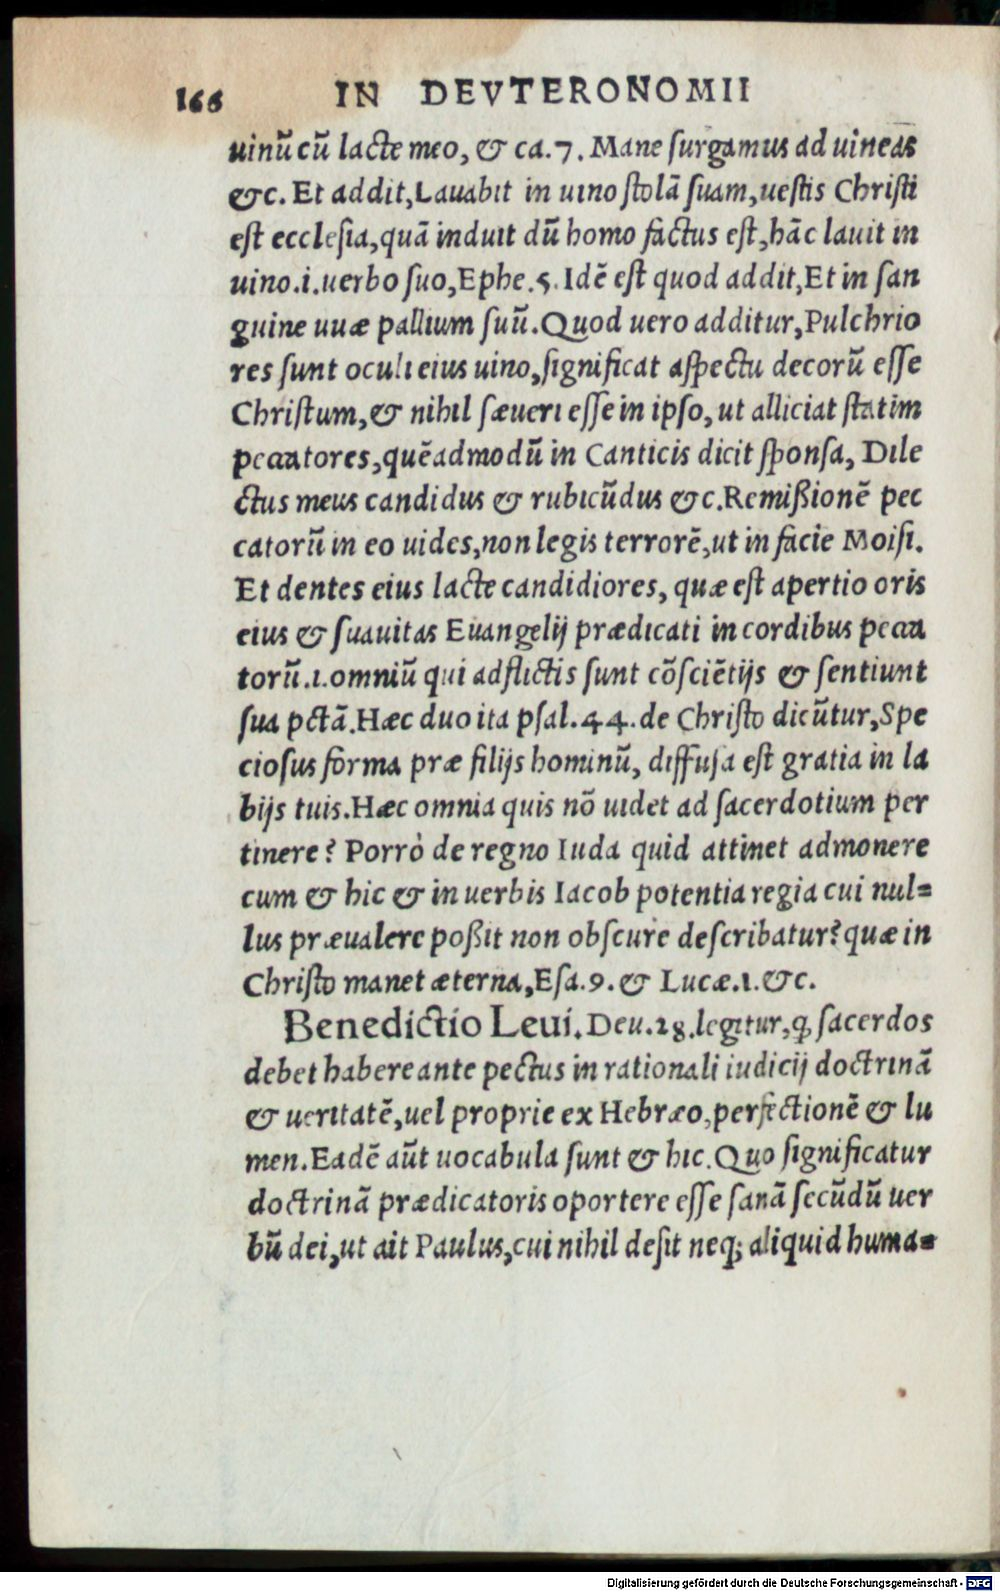 166 IN DEVTERONOMII
uinũ cũ lacte meo, & ca.7. Mane ſurgamus ad uineas
&c. Et addit, Lauabit in uino ſtolã ſuam, ueſtis Chriſti
eſt eccleſia, quã induit dũ homo factus eſt, hãc lauit in
uino.i.uerbo ſuo, Ephe.5. Idẽ eſt quod addit, Et in ſan
guine uuæ pallium ſuũ. Quod uero additur, Pulchrio
res ſunt oculi eius uino, ſignificat aſpectu decorũ eſſe
Chriſtum, & nihil ſæueri eſſe in ipſo, ut alliciat ſtatim
peccatores, quẽadmodũ in Canticis dicit ſponſa, Dile
ctus meus candidus & rubicũdus &c. Remißionẽ pec
catorũ in eo uides, non legis terrorẽ, ut in facie Moiſi.
Et dentes eius lacte candidiores, quæ eſt apertio oris
eius & ſuauitas Euangelij prædicati in cordibus pecca
torũ.i.omniũ qui adflictis ſunt cõſciẽtijs & ſentiunt
ſua pctã. Hæc duo ita pſal.44. de Chriſto dicũtur, Spe
cioſus forma præ filijs hominũ, diffuſa eſt gratia in la
bijs tuis. Hæc omnia quis nõ uidet ad ſacerdotium per
tinere? Porrò de regno Iuda quid attinet admonere
cum & hic & in uerbis Iacob potentia regia cui nul=
lus præualere poßit non obſcure deſcribatur? quæ in
Chriſto manet æterna, Eſa.9. & Lucæ.1.&c.
Benedictio Leui. Deu.28. legitur, ꝙ ſacerdos
debet habere ante pectus in rationali iudicij doctrinã
& ueritatẽ, uel proprie ex Hebræo, perfectionẽ & lu
men. Eadẽ aũt uocabula ſunt & hic. Quo ſignificatur
doctrinã prædicatoris oportere eſſe ſanã ſecũdũ uer
bũ dei, ut ait Paulus, cui nihil deſit neq; aliquid huma=
Digitalisierung gefördert durch die Deutsche Forschungsgemeinschaft - DFG